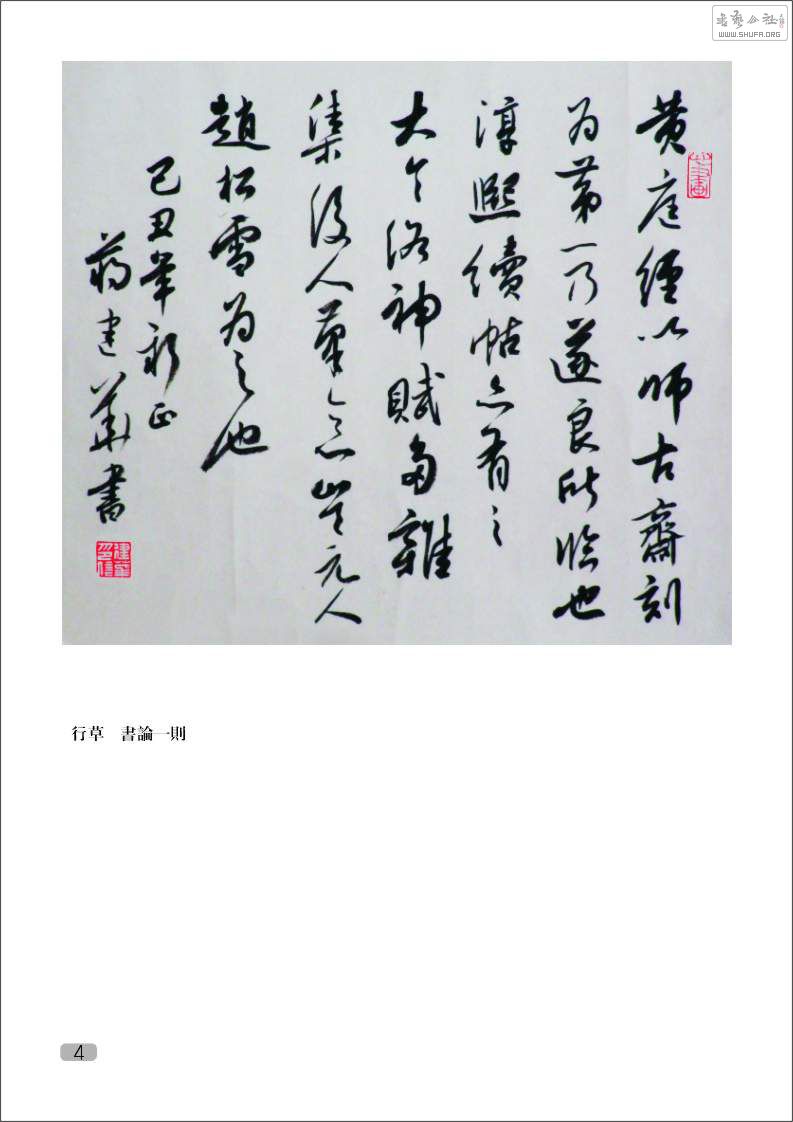 書藝公社
WWW.SHUFA.ORG
黄庭經以師古齋刻
為第一乃遂良所臨也
淳熙續帖亦有之
大令洛神賦多雜
集後人筆意豈元人
趙松雪為之也
己丑年新正
蔣建華書
行草　書論一則
4